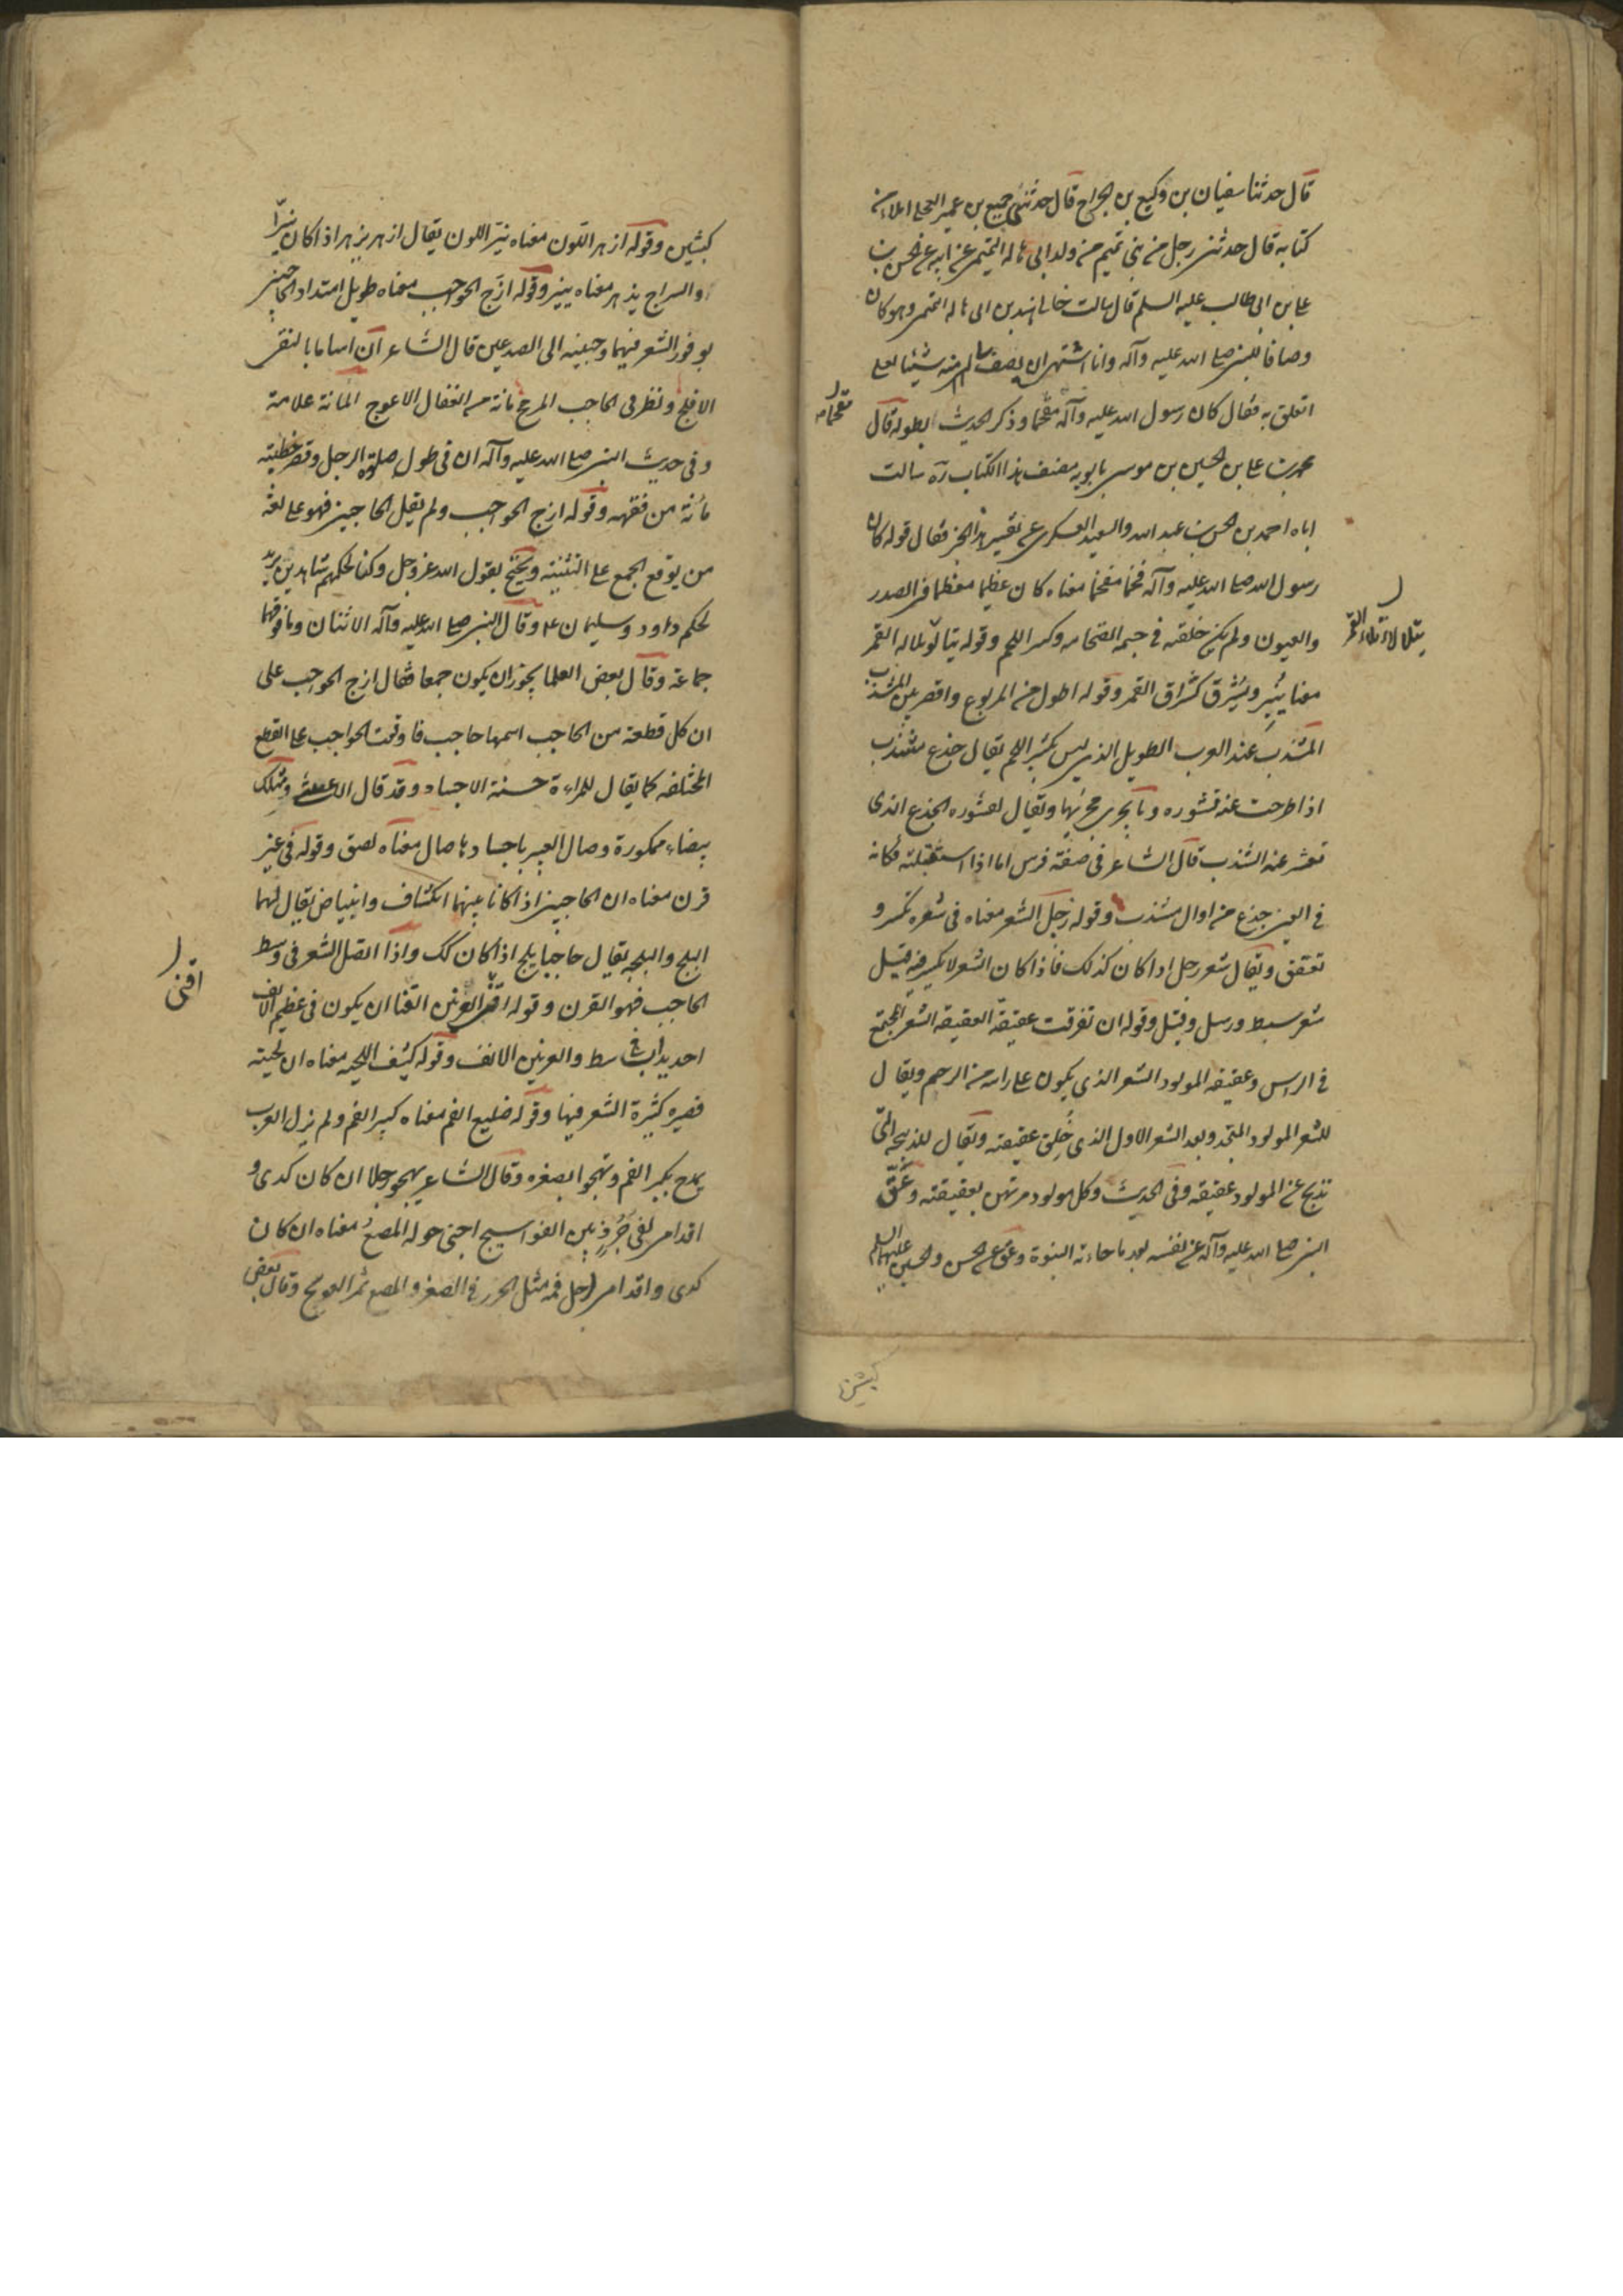 قال حدثنا سفيان بن وكيع بن الجراح قال حدثنى جميع بن عمير العجلى املاء من
كتابه قال حدثنى رجل من بنى تميم من ولد ابى هاله التميمى عن ابيه عن الحسن بن
على بن ابى طالب عليه السلم قال سالت خالى هند بن ابى هاله التميمى وهو كان
وصافا للنبى صلى الله عليه وآله وانا اشتهى ان يصف لى منه شيئا لعلى
اتعلق به فقال كان رسول الله صلى الله عليه وآله مفخما وذكر الحديث بطوله قال
محمد بن على بن الحسين بن موسى بن بابويه مصنف هذا الكتاب ره سالت
ابا احمد بن الحسن بن عبد الله والسعيد العسكرى عن تفسير هذا الخبر فقال قوله كان
رسول الله صلى الله عليه وآله فخما مفخما معناه كان عظيما معظما فى الصدر
والعيون ولم يكن خلقته فى جسمه الضخامه وكسر اللحم وقوله يتلألؤ تلاله القمر
يتلألأ تلألؤ القمر
معناه ينير ويشرق كشراق القمر وقوله اطول من المربوع واقصر من المشذب
المشذب عند العرب الطويل الذى ليس بكثير اللحم يقال جذع مشذب
اذا طرحت عنه قشوره وما يجرى مجريها ويقال لقشوره الجذع الذى
تقشر عنه الشذب قال الشاعر فى صفة فرس اما اذا استقبلته فكانه
فى العين جذع من اوال مشذب وقوله رجل الشعر معناه فى شعره تكسر و
تعقف ويقال شعر رجل اذا كان كذلك فاذا كان الشعر لا تكسر فيه قيل
شعر سبط ورسل وقيل وقوله ان تفرقت عقيقته العقيقه الشعر المجتمع
فى الراس وعقيقه المولود الشعر الذى يكون على راسه من الرحم ويقال
للشعر المولود المتجدد بعد الشعر الاول الذى حُلِق عقيقته ويقال للذبيحه التى
تذبح عن المولود عقيقه وفى الحديث وكل مولود مرتهن بعقيقته وعَقّ
النبى صلى الله عليه وآله عن نفسه بعد ما جاءته النبوة وعق عن الحسن والحسين عليهما السلم
كبشين
كبشين وقوله ازهر اللون معناه نير اللون يقال ازهر يزهر اذا كان نيرّا
والسراج يزهر معناه ينير وقوله ازج الحواجب معناه طويل امتداد الحاجبين
بوفور الشعر فيهما وجبينه الى الصدغين قال الشاعر ان ابتساما بالنقى
الافلج ونظر فى الحاجب المزجج مانة من الفعال الاعوج المانة علامة
وفى حديث النبى صلى الله عليه وآله ان فى طول صلوة الرجل وقصر خطبته
مانة من فقهه وقوله ازج الحواجب ولم يقل الحاجبين فهو على لغه
من يوقع الجمع على التثنيته ويحتج بقول الله عز وجل وكنا لحكمهم شاهدين يريد
لحكم داود وسليمان ع وقال النبى صلى الله عليه وآله الاثنان وما فوقهما
جماعة وقال بعض العلما يجوز ان يكون جمعا فقال ازج الحواجب على
ان كل قطعة من الحاجب اسمها حاجب فاوقعت الحواجب على القطع
المختلفه كما يقال للمراءة حسنة الاجساد وقد قال الاعشى ومثلك
بيضاء ممكورة وصاك العبير باجسادها صاك معناه لصق وقوله فى غير
قرن معناه ان الحاجبين اذا كانا بينهما انكشاف وابيضاض يقال لهما
البلج والبلجه يقال حاجبا بلج اذا كان كك واذا اتصل الشعر فى وسط
الحاجب فهو القرن وقوله اقنى العرنين القنا ان يكون فى عظم الانف
اقنى
احديداب فى وسط والعرنين الانف وقوله كثيف اللحيه معناه ان لحيته
قصيره كثيرة الشعر فيها وقوله ضليع الفم معناه كبير الفم ولم يزل العرب
يمدح بكبر الفم وتهجو بصغره وقال الشاعر يهجو رجلا ان كان كدى و
اقدامى لفى جُرُذٍ بين العواسيج اجنى حوله المصع معناه ان كان
كدى واقدامى لرجل فمه مثل الجرذ فى الصغر والمصع ثمر العوسج وقال بعض